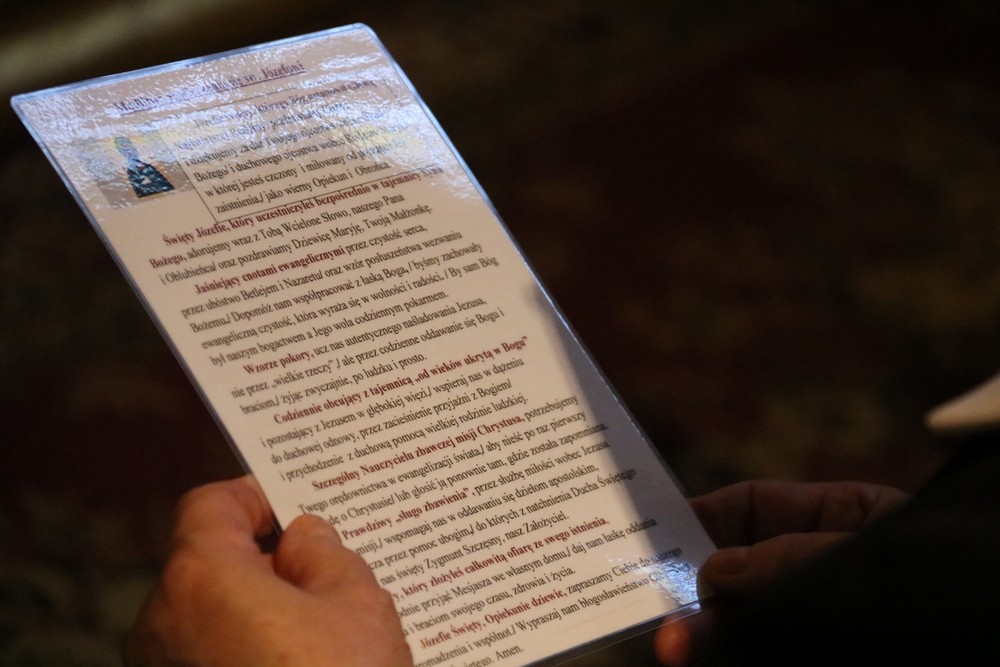 św. Józefowi
i dziękujemy za dar Twojego ojcostwa wobec Syna
Bożego/ i duchowego ojcostwa wobec Kościoła,
w której jesteś czczony i miłowany od początku jej
zaistnienia,/ jako wierny Opiekun i Obrońca.
Święty Józefie, który uczestniczyłeś bezpośrednio w tajemnicy Syna
Bożego, adorujemy wraz z Tobą Wcielone Słowo, naszego Pana
i Oblubieńca/ oraz pozdrawiamy Dziewicę Maryję, Twoją Małżonkę.
Jaśniejący cnotami ewangelicznymi przez czystość serca,
przez ubóstwo Betlejem i Nazaretu/ oraz wzór posłuszeństwa wezwaniu
Bożemu./ Dopomóż nam współpracować z łaską Boga,/ byśmy zachowały
ewangeliczną czystość, która wyraża się w wolności i radości. / By sam Bóg
był naszym bogactwem a Jego wola codziennym pokarmem.
Wzorze pokory, ucz nas autentycznego naśladowania Jezusa,
nie przez „wielkie rzeczy”,/ ale przez codzienne oddawanie się Bogu i
braciom,/ żyjąc zwyczajnie, po ludzku i prosto.
Codziennie obcujący z tajemnicą „od wieków ukrytą w Bogu”
i pozostający z Jezusem w głębokiej więzi,/ wspieraj nas w dążeniu
do duchowej odnowy, przez zacieśnienie przyjaźni z Bogiem/
i przychodzenie z duchową pomocą wielkiej rodzinie ludzkiej.
Szczególny Nauczycielu zbawczej misji Chrystusa, potrzebujemy
Twego orędownictwa w ewangelizacji świata,/ aby nieść po raz pierwszy
dę o Chrystusie/ lub głosić ją ponownie tam, gdzie została zapomniana.
Prawdziwy „sługo zbawienia”, przez służbę miłości wobec Jezusa
misji,/ wspomagaj nas w oddawaniu się dziełom apostolskim,
cza przez pomoc ubogim,/ do których z natchnienia Ducha Świętego
nas święty Zygmunt Szczęsny, nasz Założyciel.
y, który złożyłeś całkowitą ofiarę ze swego istnienia,
dnie przyjąć Mesjasza we własnym domu,/ daj nam łaskę oddania
i braciom swojego czasu, zdrowia i życia.
Józefie Święty, Opiekunie dziewic, zapraszamy Ciebie do naszego
romadzenia i wspólnot./ Wypraszaj nam błogosławieństwo
iętego. Amen.